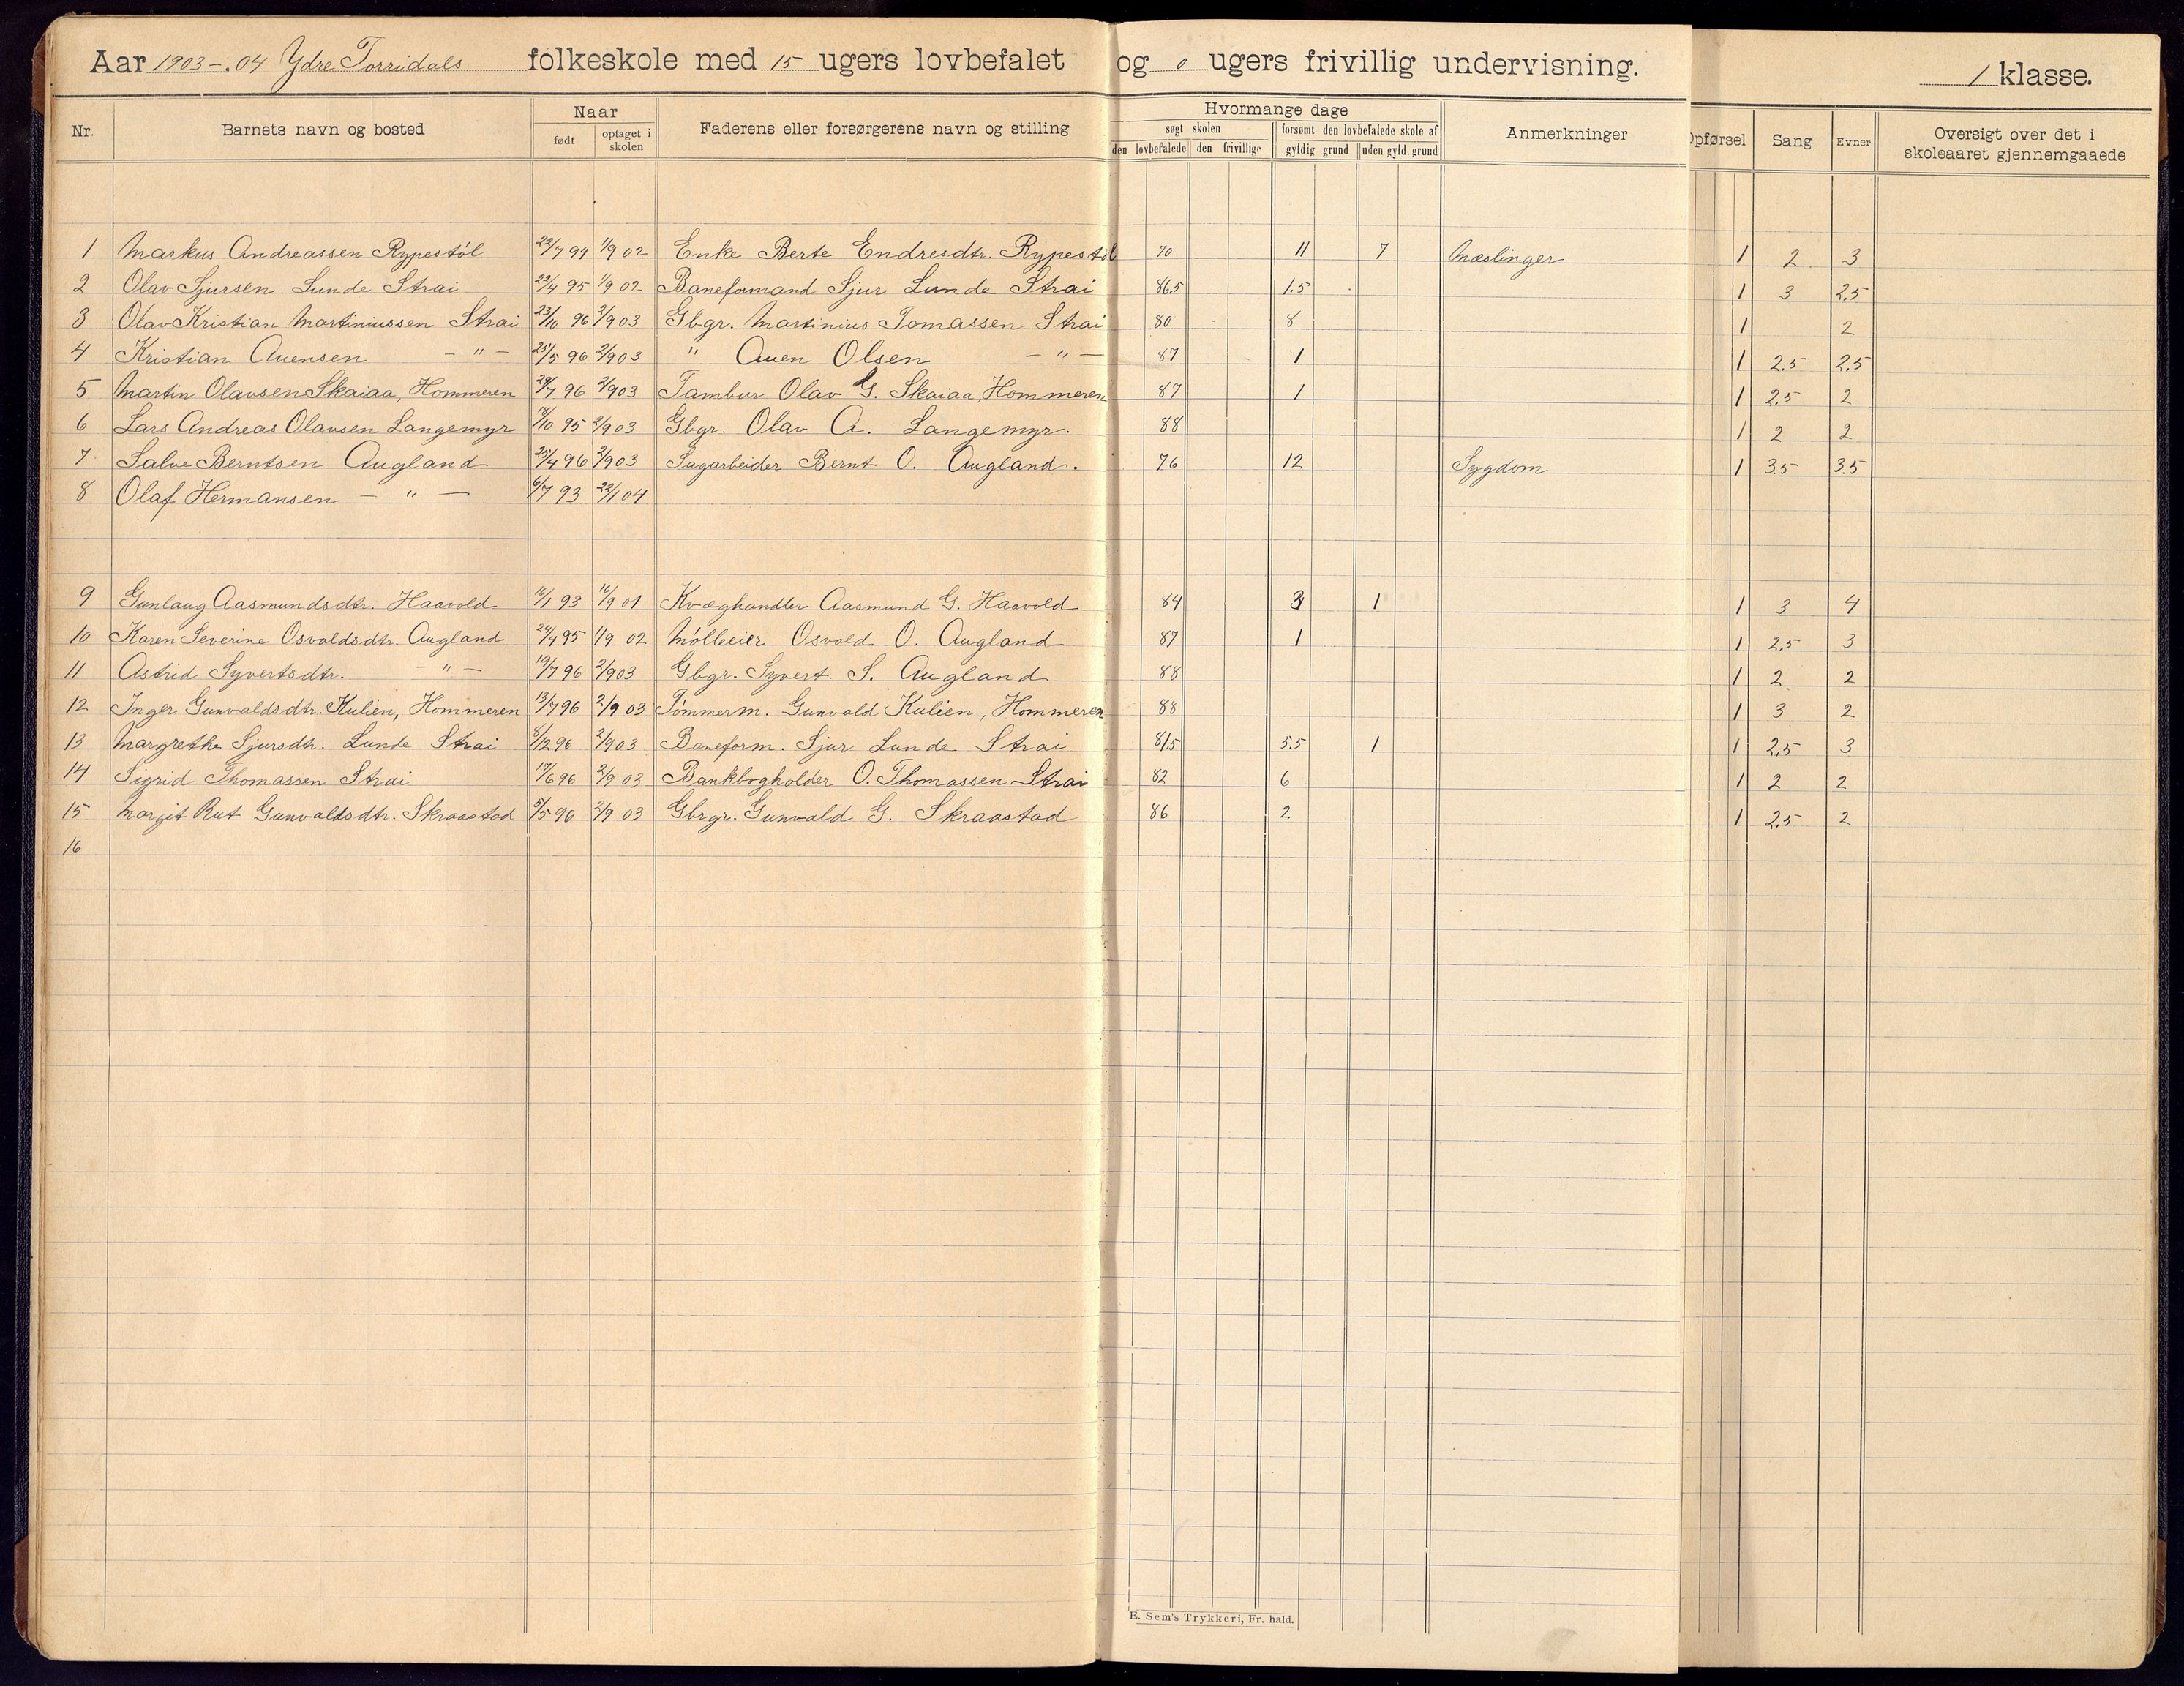 Aar 1903-.04 Ydre Torridals folkeskole med 15 ugers lovbefalet og 0 ugers frivillig undervisning. 1 klasse.
Nr. Barnets navn og bosted Naar født optaget i skolen Faderens eller forsørgerens navn og stilling Hvormange dage søgt skolen den lovbefalede den frivillige forsømt den lovbefalede skole af gyldig grund uden gyld. grund Anmerkninger Opførsel Sang Evner Oversigt over det i skoleaaret gjennemgaaede
1 Markus Andreassen Rypestöl 22/7 94 1/9 02 Enke Berte Endresdtr. Rypestöl 70 11 7 Mæslinger 1 2 3
2 Olav Sjursen Lunde Strai 22/4 95 1/9 02 Baneformand Sjur Lunde Strai 86.5 1.5 1 3 2,5
3 Olav Kristian Martiniussen Strai 23/10 96 2/9 03 Gbgr. Martinius Tomassen Strai 80 8 1 2
4 Kristian Auensen - " - 25/5 96 2/9 03 " Auen Olsen - " - 87 1 1 2.5 2,5
5 Martin Olavsen Skaiaa, Hommeren 29/7 96 2/9 03 Tambur Olav G. Skaiaa, Hommeren 87 1 1 2.5 2
6 Lars Andreas Olavsen Langemyr 18/10 95 2/9 03 Gbgr. Olav A. Langemyr. 88 1 2 2
7 Salve Berntsen Augland 25/4 96 2/9 03 Sagarbeider Bernt O. Augland. 76 12 Sygdom 1 3.5 3.5
8 Olaf Hermansen - " - 6/7 93 22/1 04
9 Gunlaug Aasmundsdtr. Haavold 16/1 93 16/9 01 Kvæghandler Aasmund G. Haavold 84 3 1 1 3 4
10 Karen Severine Osvaldsdtr. Augland 24/4 95 1/9 02 Mölleeier Osvald O. Augland 87 1 1 2,5 3
11 Astrid Syvertsdtr. - " - 19/7 96 2/9 03 Gbgr. Syvert. S. Augland 88 1 2 2
12 Inger Gunvaldsdtr. Kulien, Hommeren 13/7 96 2/9 03 Tömmerm. Gunvald Kulien, Hommeren 88 1 3 2
13 Margrethe Sjursdtr. Lunde Strai 8/12 96 2/9 03 Baneform. Sjur Lunde Strai 81.5 5.5 1 1 2,5 3
14 Sigrid Thomassen Strai 17/6 96 2/9 03 Bankbogholder O. Thomassen Strai 82 6 1 2 2
15 Margit Rut Gunvaldsdtr. Skraastad 5/5 96 2/9 03 Gbrgr. Gunvald G. Skraastad 86 2 1 2,5 2
16
E. Sem's Trykkeri, Fr. hald.